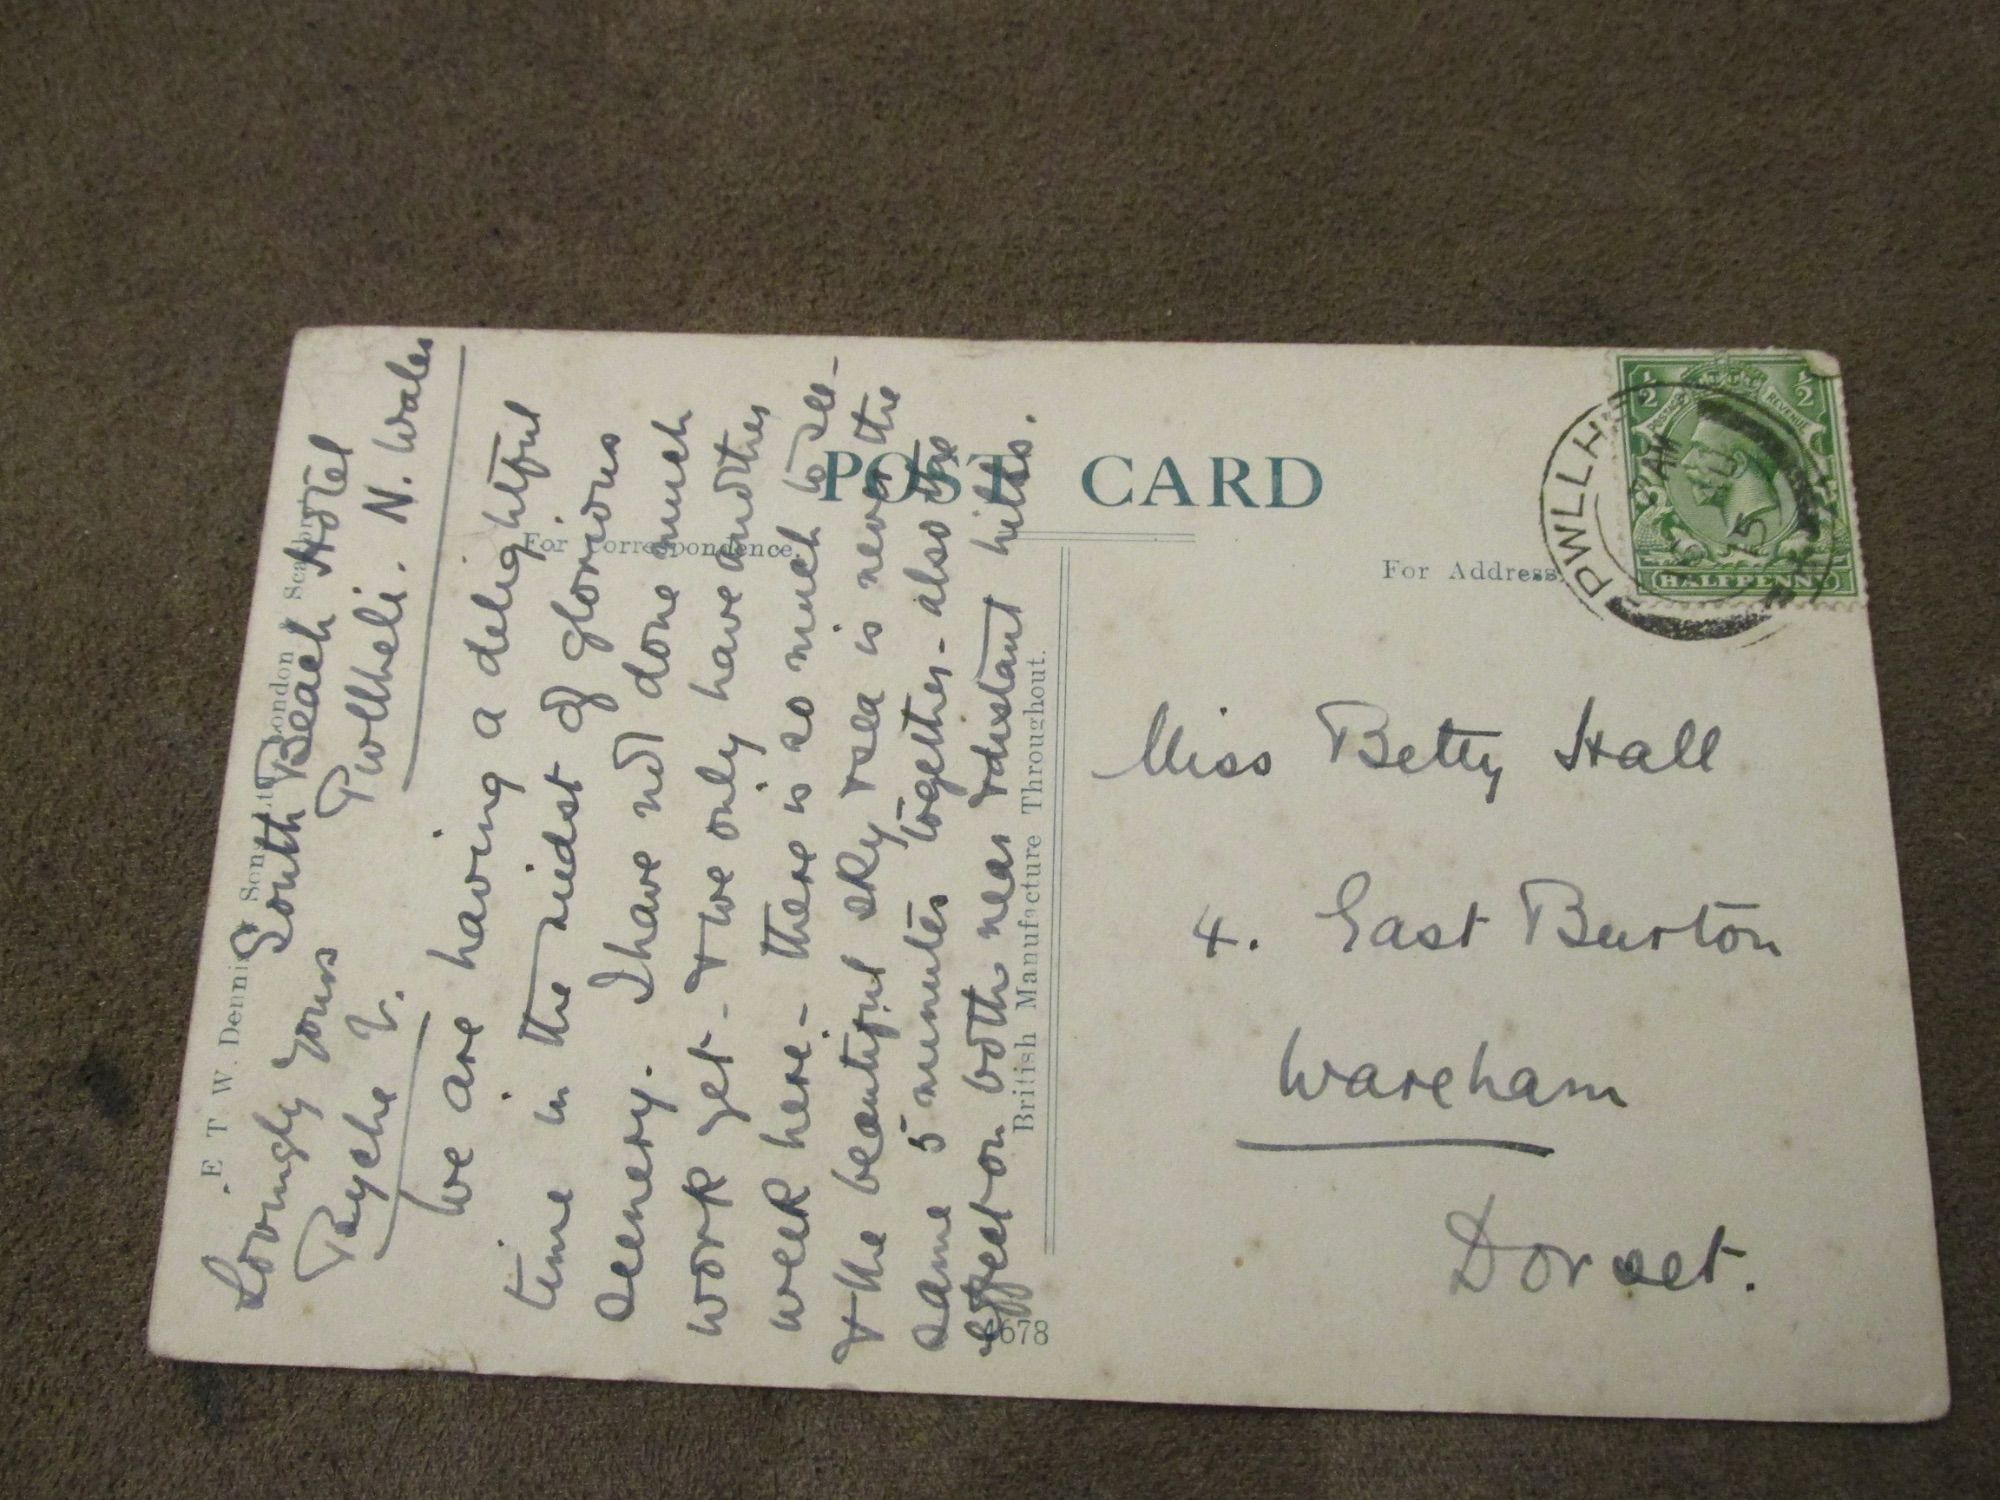 POST CARD
For Correspondence.
For Address.
E T W. Dennis Sons Ltd London Scarboro
British Manufacture Throughout.
678
PWLLH
AM
JU
15
POSTAGE REVENUE
1/2 1/2
HALFPENNY
South Beach Hotel
Pwllheli. N. Wales
We are having a delightful
time in the midst of glorious
scenery. I have not done much
work yet - & we only have another
week here. - there is so much to see -
& the beautiful sky & sea is never the
same 5 minutes together - also the
effect on both near & distant hills.
Lovingly yours
Psyche
Miss Betty Hall
4. East Burton
Wareham
Dorset.